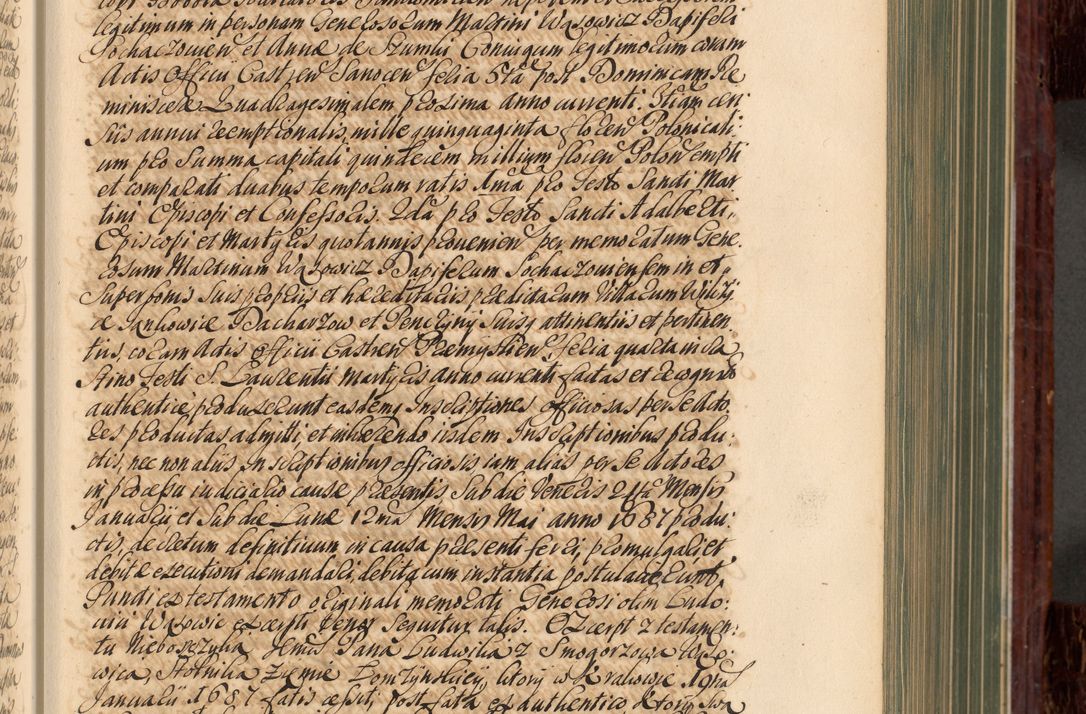 legitimum in personam Generosorum Martini Wąsowicz Dapiferi
Sochaczowien et Annæ de Szumli Coniugum legitimorum coram
Actis Officii Castren Sanocen feria 5ta post Dominicam Re
miniscere Quadragesimalem proxima anno currenti. Itiam cen
sus annui reemptionalis, mille quinquaginta floren Polonicali:
um pro Summa capitali quindecem millium floren Polon empti
et comparati duabus temporum ratis Ima pro festo Sancti Mar
tini Episcopi et Confessoris. 2da pro festo Sancti Adalberti,
Episcopi et Martyris quotannis provenien per memoratum Gene.
rosum Martinum Wąsowicz Dapiferum Sochaczoviensem in et
Super bonis Suis propriis et hæreditariis prædictarum Villarum
de Jankowice Dacharzow et Penczyny Suisq attinentiis et pertinen
tiis, coram Actis Officii Castren Præmyslien feria quarta in cra
stino festi S. Laurentii Martyris anno currenti factas et recognitas
authentice, produxerunt easdemq Inscriptiones officiosas per se Acto
res productas admitti, et inhærendo iisdem Inscriptionibus produ:
ctis, nec non aliis Inscriptionibus officiosis iam alias per Se Actores
in processu iudiciario causæ præsentis Sub die Veneris 24ta Mensis
Januarii et Sub die Lunæ 12ma Mensis Maj anno 1687 produ:
ctis, decretum definitivum in causa præsenti ferri, promulgari et
debitæ executioni demandari, debita cum instantia postularunt.
Pundi ex testamento originali memorati Generosi olim Ludo:
vici Wąsowic excerpti tenor Sequitur talis. Excerpt z testamen:
tu Nieboszczyka Jemci Pana Ludwika z Smogorzowa Wąso:
wica, Stolnika Ziemie Łomżynskiey, ktory w Krakowie 19na
Januarii 1687 fatis cessit, post fata ex authentico ktory